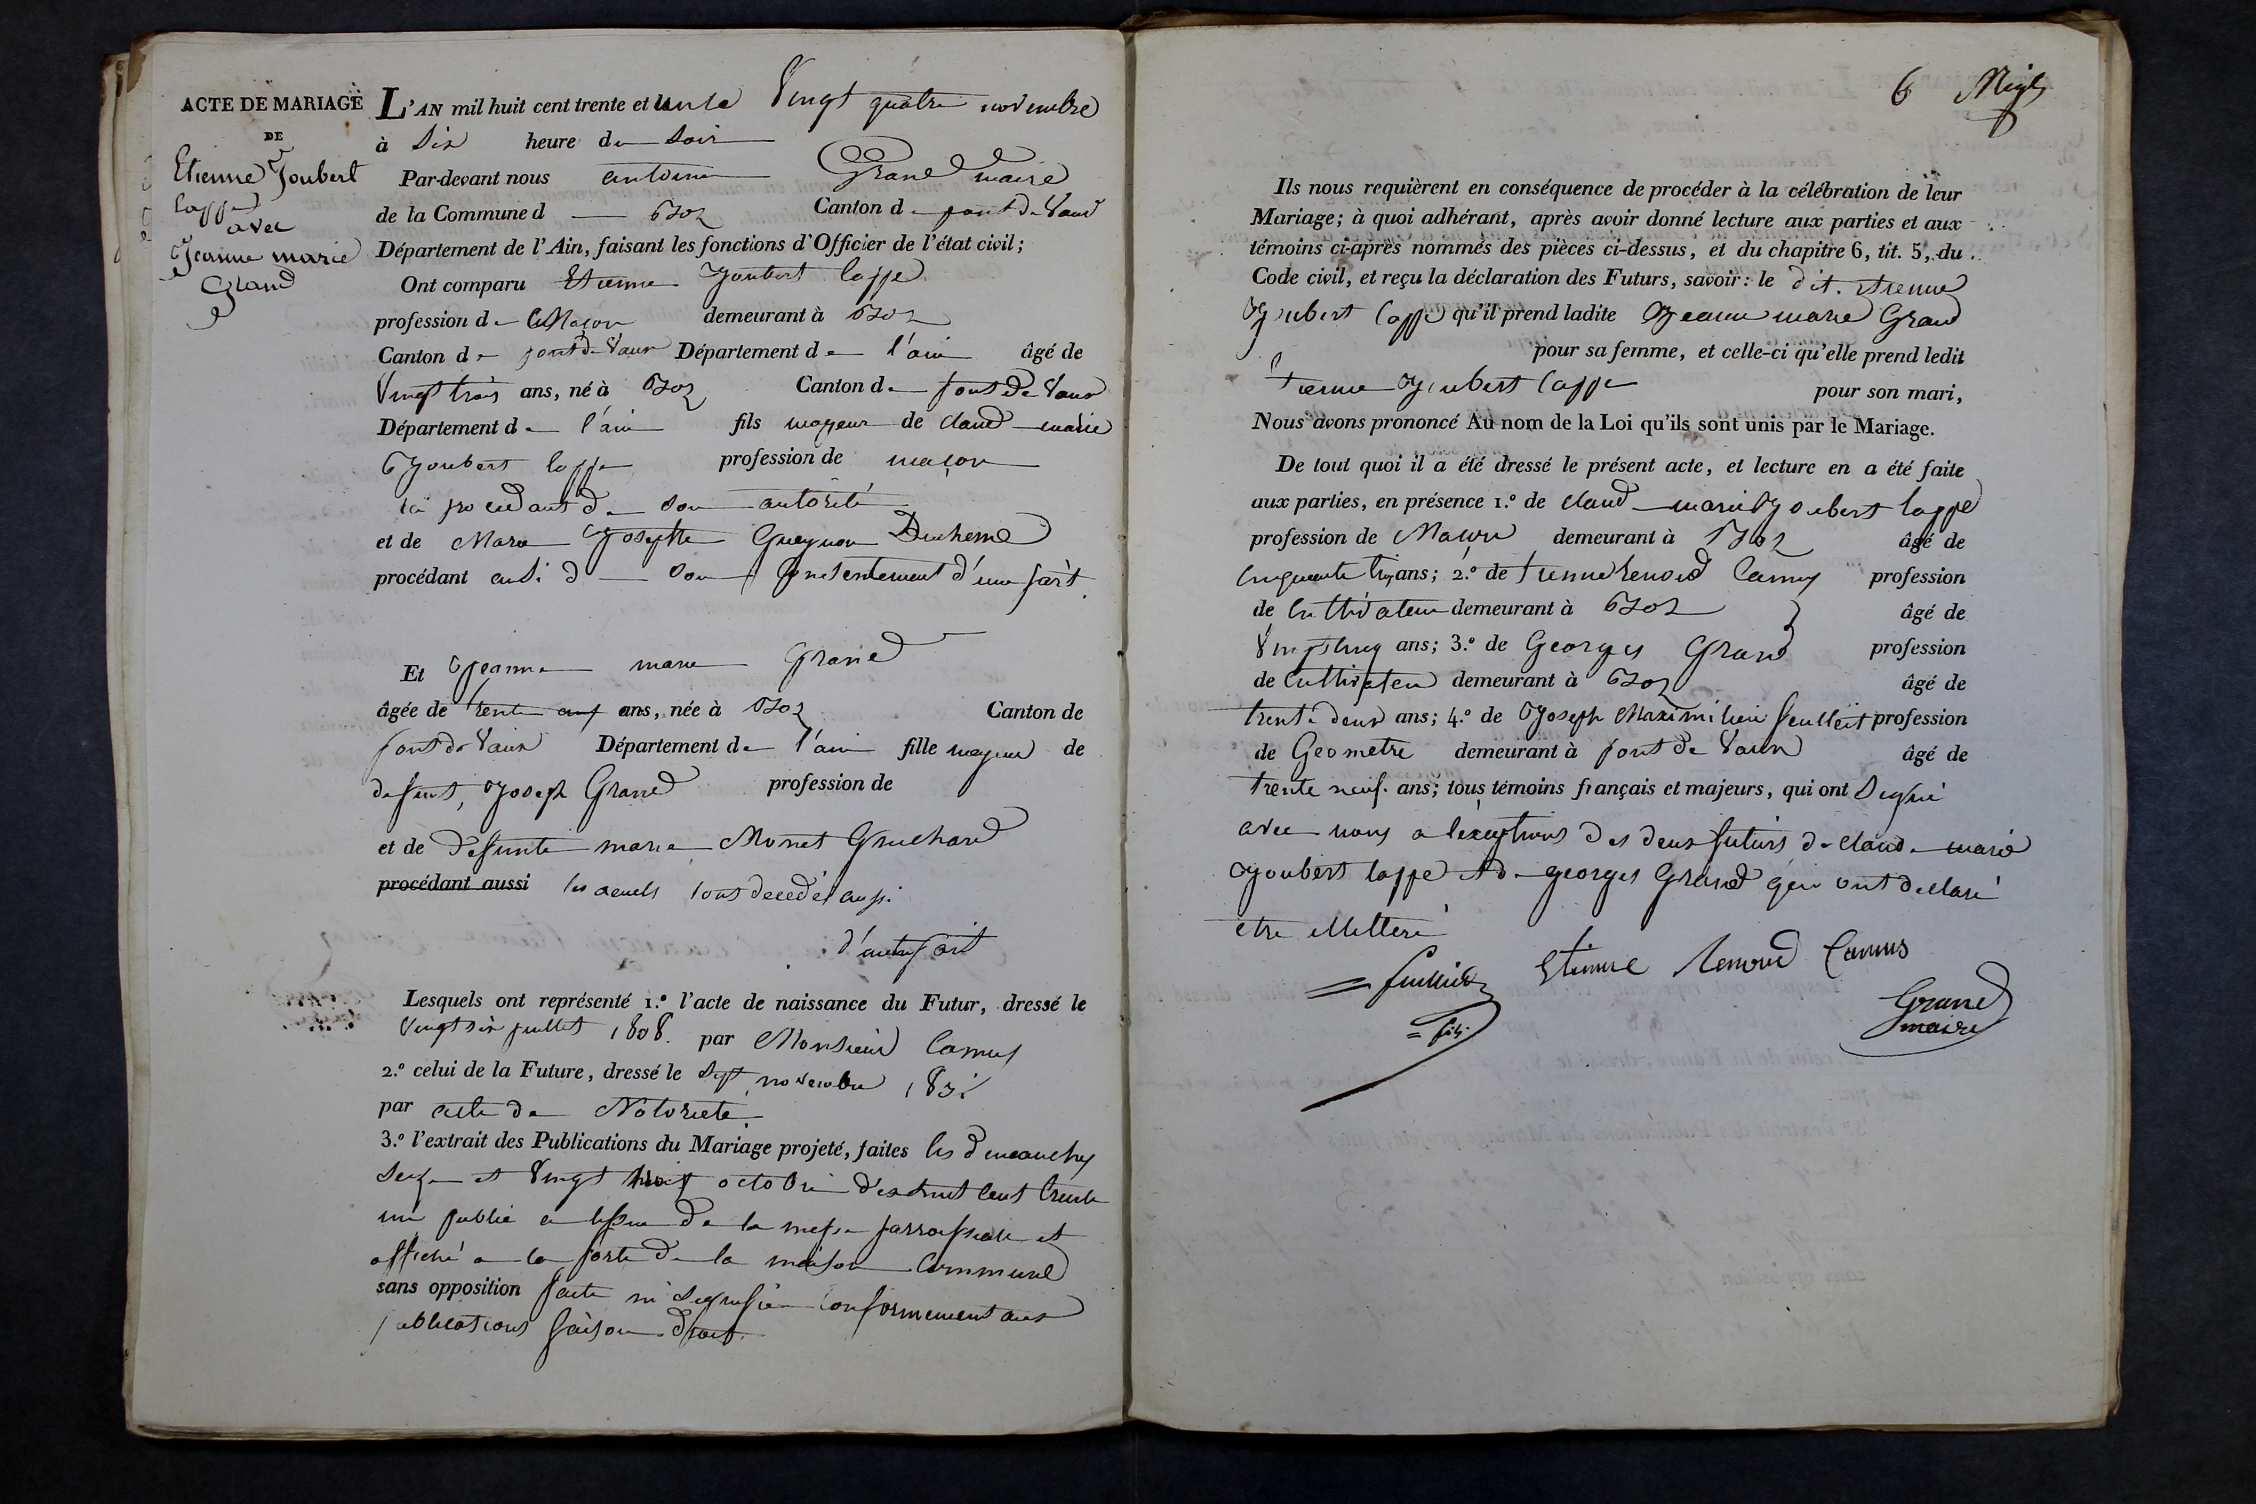 ACTE DE MARIAGE
DE
Etienne Joubert
loppe
avec
Jeanne marie
Grand
L'AN mil huit cent trente et un le Vingt quatre novembre
à Six heure du Soir
Par-devant nous antoine Grand maire
de la Commune d ozan Canton de pont de Vaux
Département de l'Ain, faisant les fonctions d'Officier de l'état civil;
Ont comparu Etienne Joubert loppe
profession de Maçon demeurant à
Canton de pont de Vaux Département de l'ain âgé de
Vingt trois ans, né à Canton de pont de Vaux
Département de l'ain fils mageur de claude marie
Joubert loppe profession de maçon
ici procedant de Son autorité
et de Marie Josephte Guyon Duchene
procédant ausi de Son Consentement d'une part
Et Jeanne marie Grand
âgée de trente ans, née à Canton de
pont de Vaux Département de l'ain fille mageur de
defunt, Joseph Grand profession de
et de defunte marie Monet Gruchard
procédant aussi les aeuels tous decedés aussi
d'autre part
Lesquels ont représenté 1.º l'acte de naissance du Futur, dressé le
Vingt Six juillet 1808. par Monsieur Camus
2.º celui de la Future, dressé le Sept novembre 1831
par acte de Notorieté
3.º l'extrait des Publications du Mariage projeté, faites les dimanches
Seize et Vingt trois octobre dixhuit Cent trente
un publié a lissue de la messe parroissiale et
affiché a la porte de la maison Commune
sans opposition faite ni Signifiée Conformement aux
publications faison droit.
6 Migl
Ils nous requièrent en conséquence de procéder à la célébration de leur
Mariage; à quoi adhérant, après avoir donné lecture aux parties et aux
témoins ci-après nommés des pièces ci-dessus, et du chapitre 6, tit. 5, du
Code civil, et reçu la déclaration des Futurs, savoir: le dit. etienne
Joubert loppe qu'il prend ladite Jeanne marie Grand
pour sa femme, et celle-ci qu'elle prend ledit
etienne Joubert loppe pour son mari,
Nous avons prononcé Au nom de la Loi qu'ils sont unis par le Mariage.
De tout quoi il a été dressé le présent acte, et lecture en a été faite
aux parties, en présence 1.º de claude marie Joubert loppe
profession de Maçon demeurant à âgé de
Cinquante ans; 2.º de etienne Renoud Camus profession
de Cultivateur demeurant à âgé de
Vingt Cinq ans; 3.º de Georges Grand profession
de Cultivateur demeurant à âgé de
trente deux ans; 4.º de Joseph Maximilien feuillet profession
de Geometre demeurant à pont de Vaux âgé de
trente neuf. ans; tous témoins français et majeurs, qui ont Signé
avec nous a léxceptions des deux futurs de claude marie
Joubert loppe et de georges Grand qui ont declaré
etre illetteré
feuillet Etienne Renoud Camus
fils Grand
maire